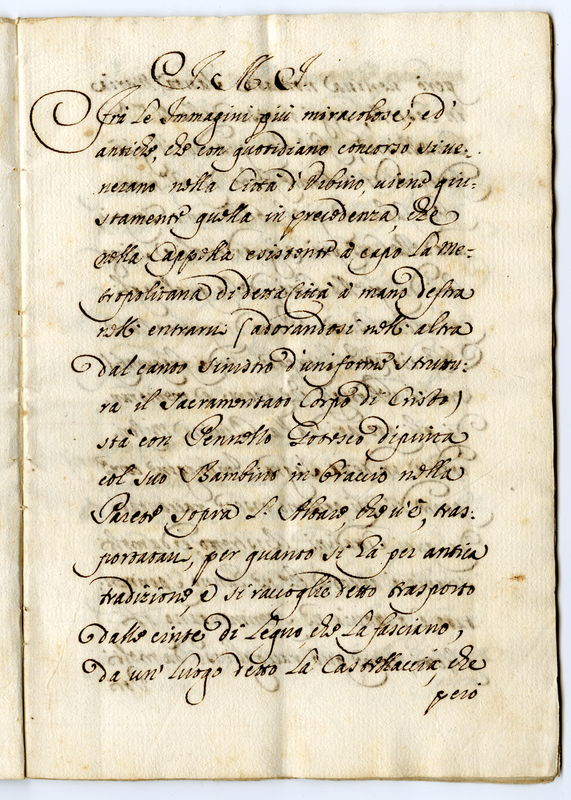 J. M. J.
Frà le Immagini più miracolose, ed'
antiche, che con quotidiano concorso si ve-
nerano nella Città d'Urbino, viene giu-
stamente quella in precedenza, che
nella Cappella esistente à capo la Me-
tropolitana di detta Città à mano destra
nell' entrarvi (adorandosi nell' altra
dal canto sinistro d'uniforme struttu-
ra il Sacramentato Corpo di Cristo)
stà con Pennello Gotesco dipinta
col suo Bambino in braccio nella
Parete sopra l'Altare, che v'è, tras-
portatavi, per quanto si hà per antica
tradizione, e si raccoglie detto trasporto
dalle cinte di Legno, che la fasciano,
da un' luogo detto la Castellaccia, che
però